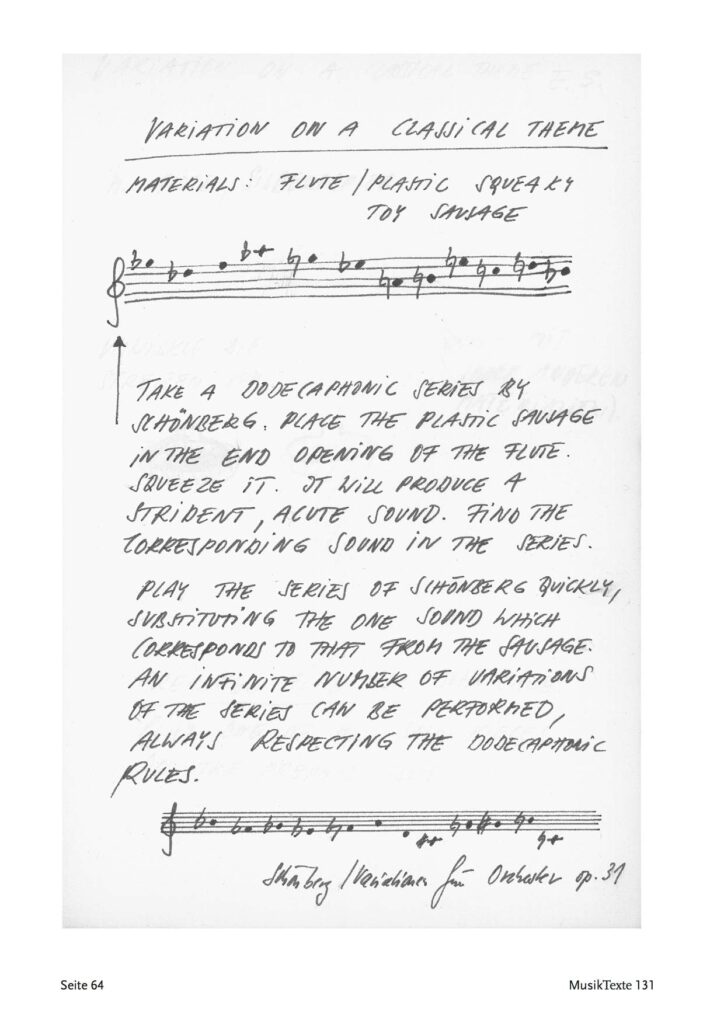 VARIATION ON A CLASSICAL THEME
MATERIALS: FLUTE / PLASTIC SQUEAKY
TOY SAUSAGE
TAKE A DODECAPHONIC SERIES BY
SCHÖNBERG. PLACE THE PLASTIC SAUSAGE
IN THE END OPENING OF THE FLUTE.
SQUEEZE IT. IT WILL PRODUCE A
STRIDENT, ACUTE SOUND. FIND THE
CORRESPONDING SOUND IN THE SERIES.
PLAY THE SERIES OF SCHÖNBERG QUICKLY,
SUBSTITUTING THE ONE SOUND WHICH
CORRESPONDS TO THAT FROM THE SAUSAGE.
AN INFINITE NUMBER OF VARIATIONS
OF THE SERIES CAN BE PERFORMED,
ALWAYS RESPECTING THE DODECAPHONIC
RULES.
Schönberg / Variationen für Orchester op. 31
Seite 64
MusikTexte 131